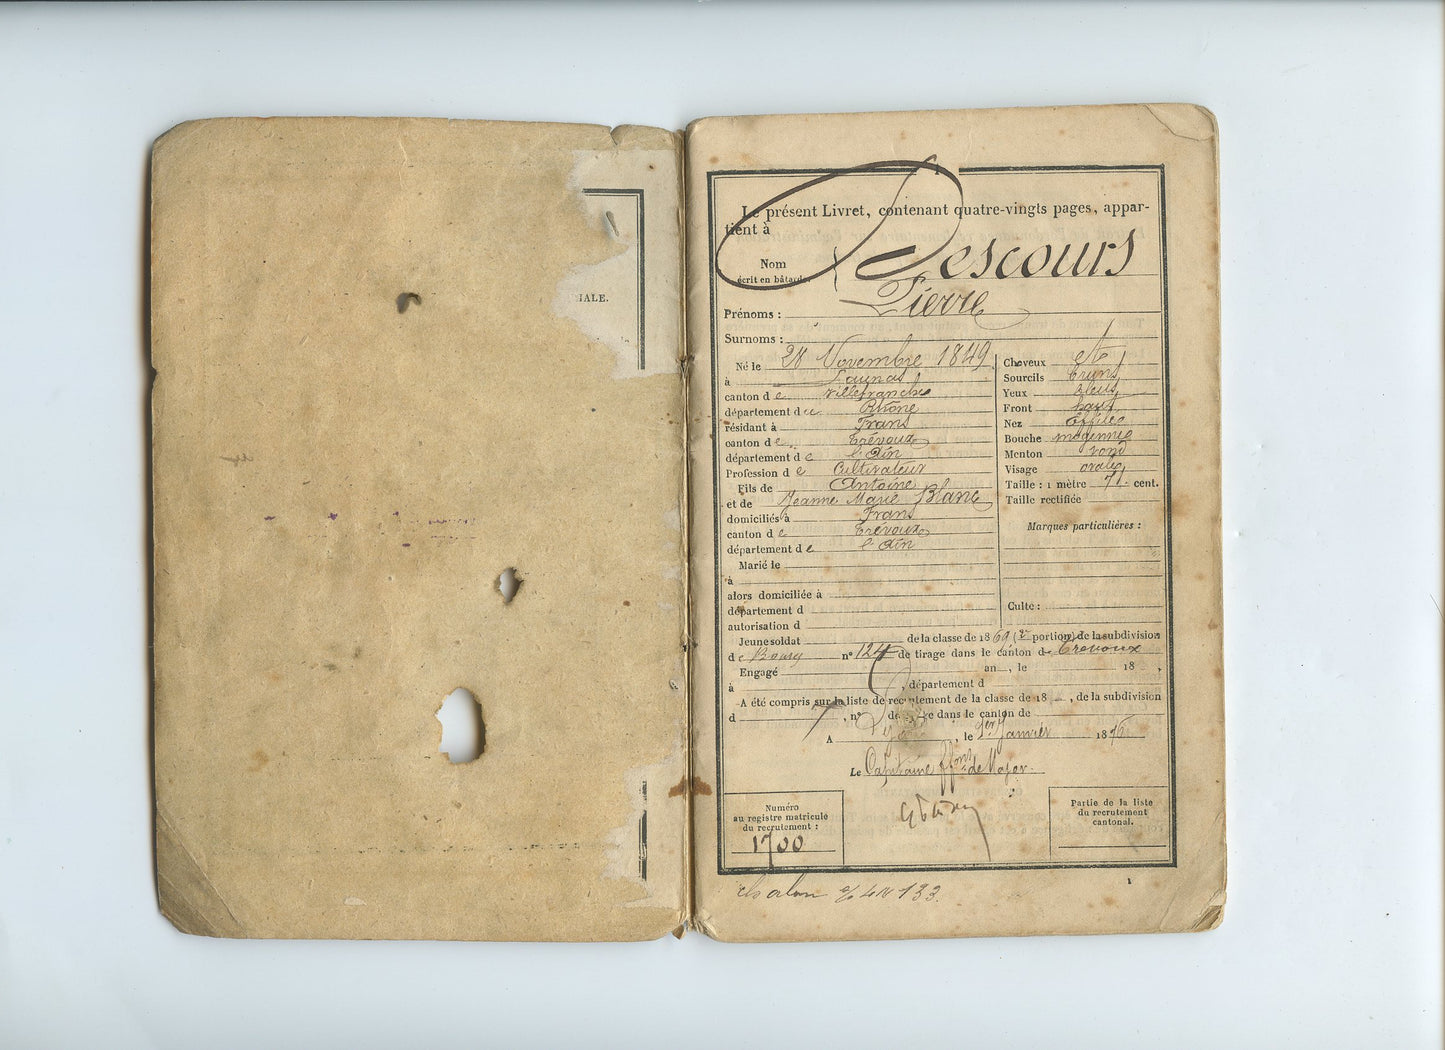 IALE.
Le présent Livret, contenant quatre-vingts pages, appar-
tient à
Nom
écrit en bâtarde.
Descours
Prénoms : Pierre
Surnoms :
Né le 28 Novembre 1849
à
canton de Villefranche
département du Rhône
résidant à Frans
canton de Trévoux
département de l'Ain
Profession de Cultivateur
Fils de Antoine
et de Jeanne Marie Blanc
domiciliés à Frans
canton de Trévoux
département de l'Ain
Marié le
à
alors domiciliée à
département d
autorisation d
Cheveux et
Sourcils bruns
Yeux bleus
Front haut
Nez effilé
Bouche moyenne
Menton rond
Visage ovale
Taille : 1 mètre 71 cent.
Taille rectifiée
Marques particulières :
Culte :
Jeune soldat de la classe de 1869 (2e portion) de la subdivision
de Bourg n° 124 de tirage dans le canton de Trévoux
Engagé an , le 18 ,
à , département d
A été compris sur la liste de recrutement de la classe de 18 , de la subdivision
d , n° de tirage dans le canton de
A , le 1er Janvier 1876
Le Capitaine ffons de Major.
Numéro
au registre matricule
du recrutement :
1700
Partie de la liste
du recrutement
cantonal.
1
chalon 133.